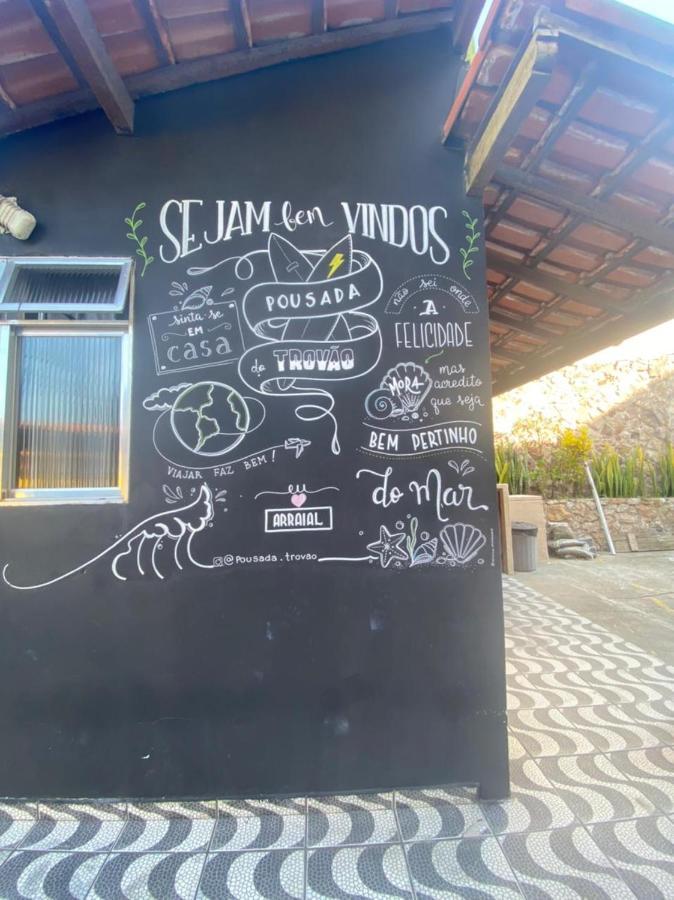 SEJAM bem VINDOS
POUSADA
do TROVÃO
sinta-se
EM
casa
VIAJAR FAZ BEM!
eu
ARRAIAL
@POUSADA.TROVAO
não sei onde
A
FELICIDADE
MORA
mas
acredito
que seja
BEM PERTINHO
do Mar